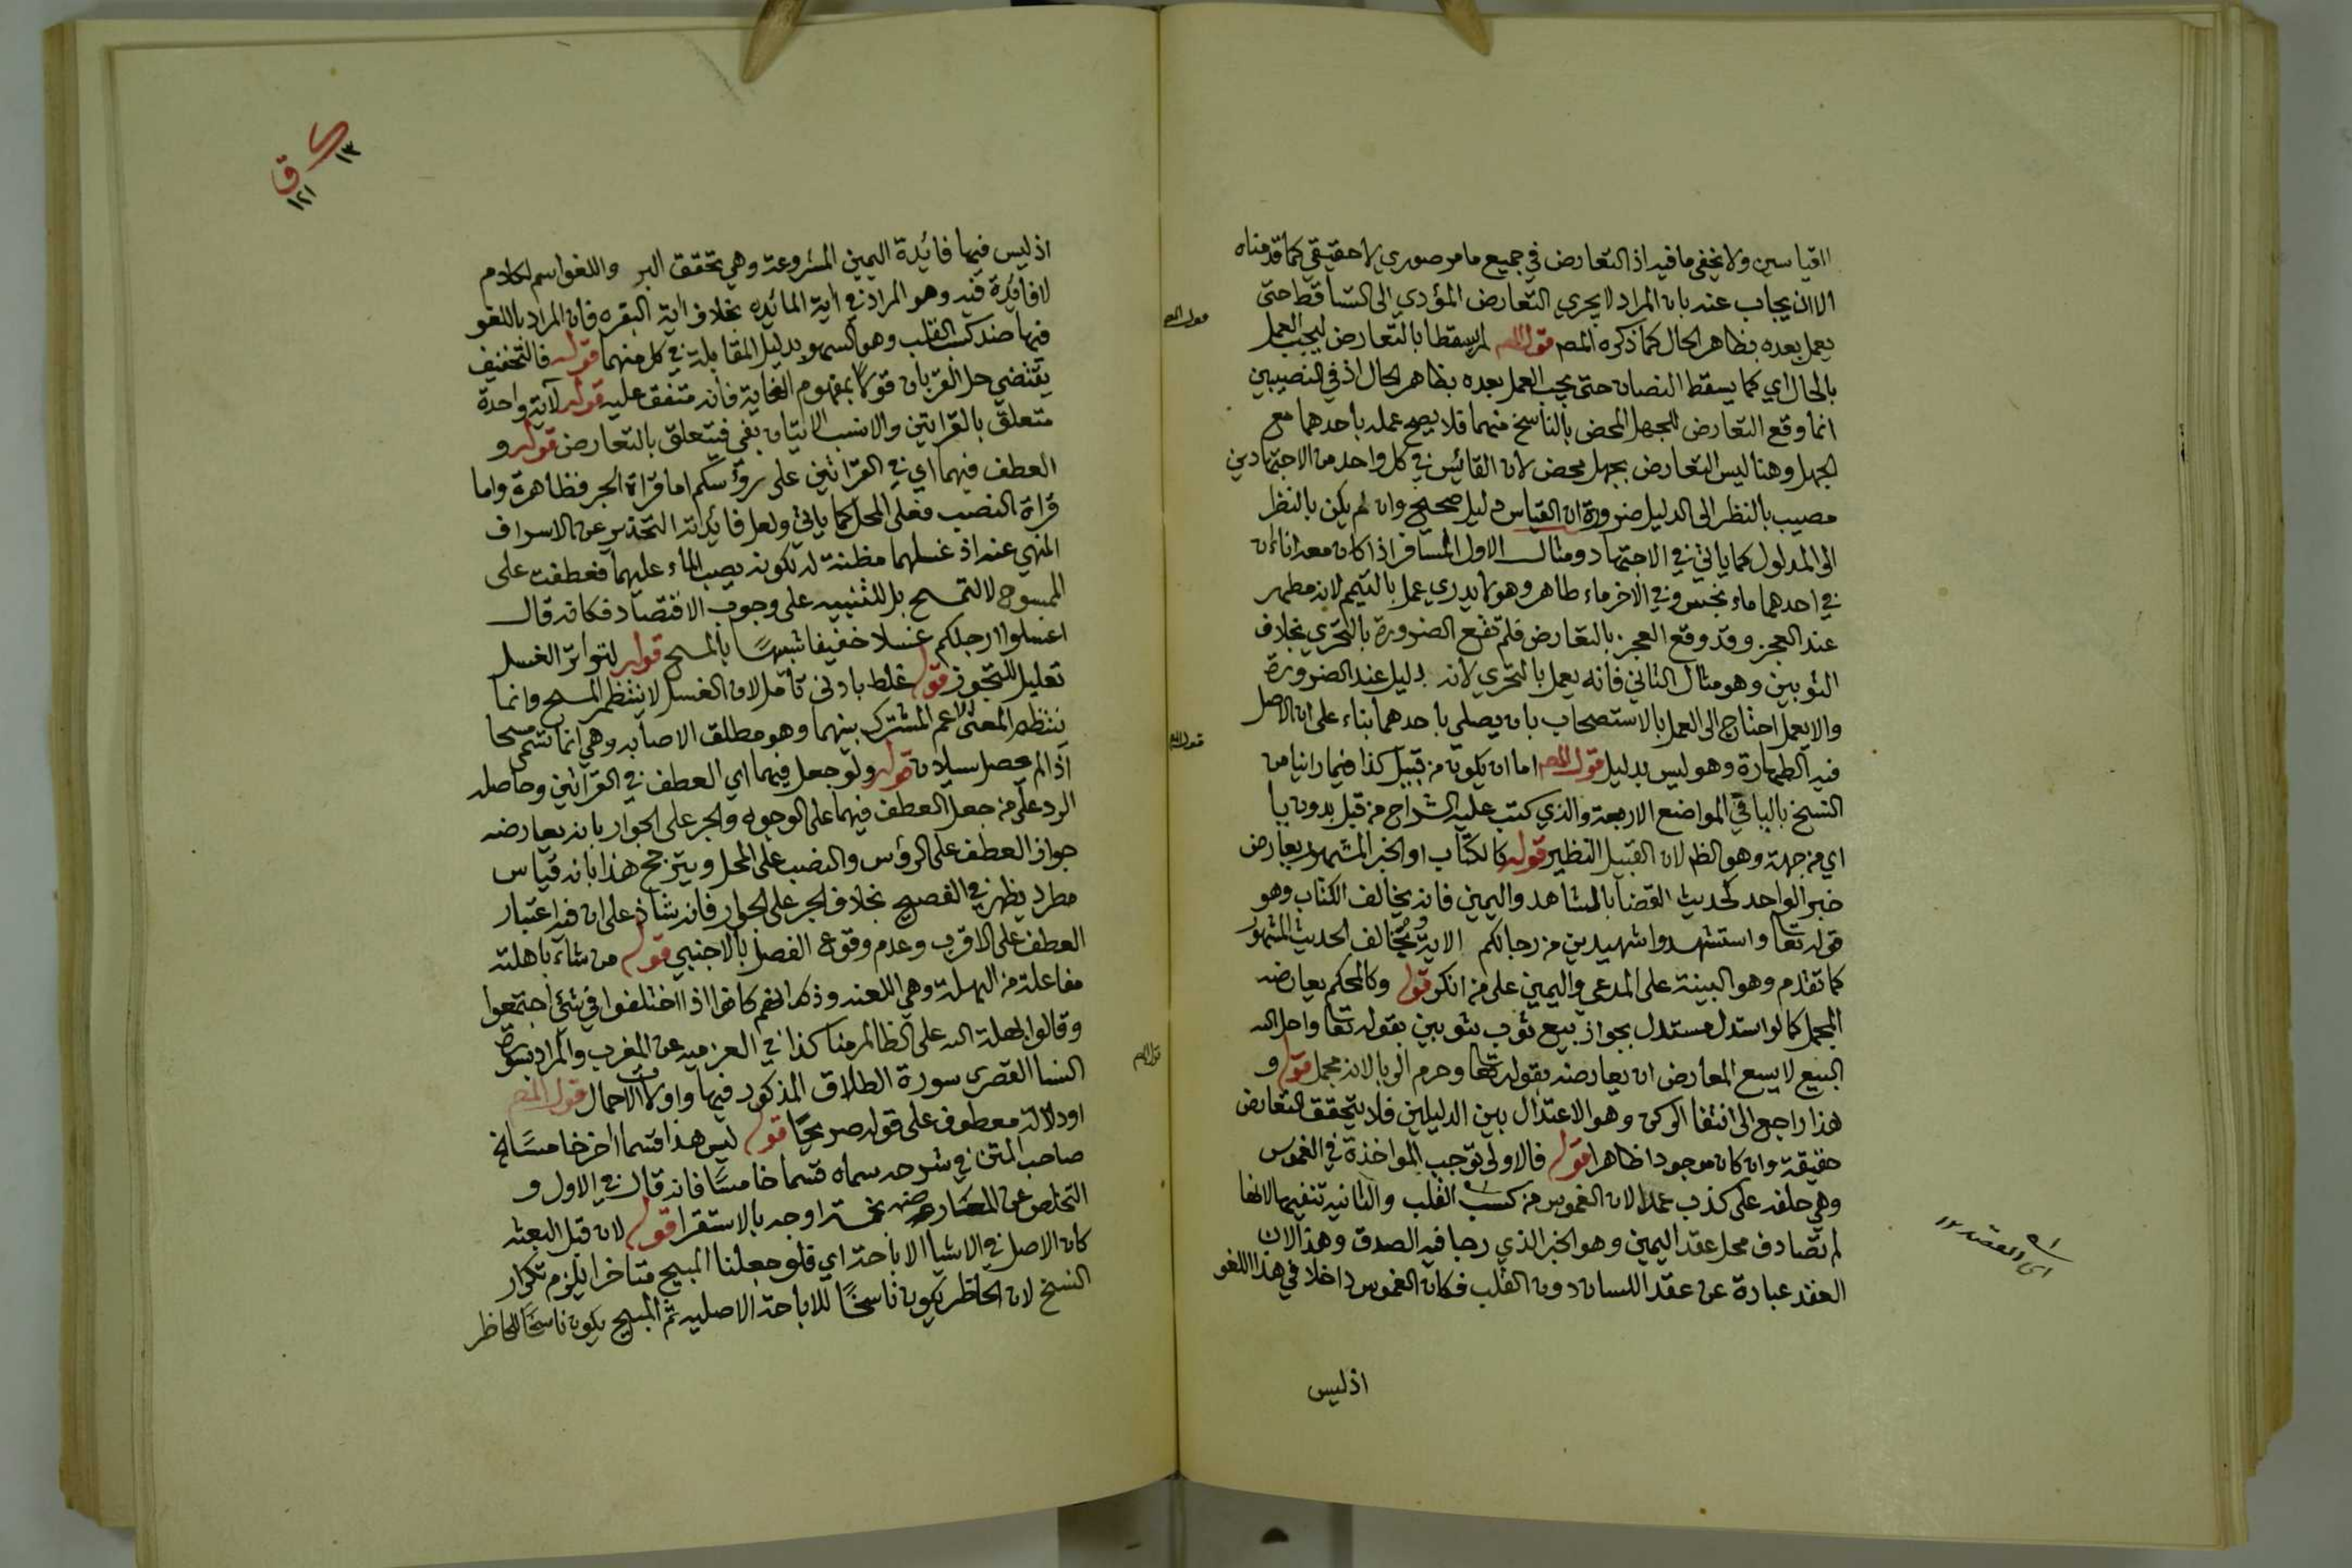 القياسين ولا يخفى ما فيه اذ التعارض في جميع ما مر صوري لا حقيقي كما قدمناه
الا ان يجاب عنه بان المراد لا يجري التعارض المؤدي الى التساقط حتى
يعمل بعده بظاهر الحال كما ذكره المصـ قول المصـ لم يسقطا بالتعارض ليجب العمل
بالحال اي كما يسقط النصان حتى يجب العمل بعده بظاهر الحال اذ في النصيبين
انما وقع التعارض للجهل المحض بالناسخ منهما فلا يصح عمله باحدهما مع
الجهل وهنا ليس التعارض بجهل محض لان القائس في كل واحد من الاجتهادين
مصيب بالنظر الى الدليل ضرورة ان القياس دليل صحيح وان لم يكن بالنظر
الى المدلول كما ياتي في الاجتهاد ومثال الاول المسافر اذا كان معه اناءان
في احدهما ماء نجس وفي الاخر ماء طاهر وهو لا يدري عمل بالتيمم لانه مطهر
عند العجز وقد وقع العجز بالتعارض فلم تقع الضرورة بالتحري بخلاف
الثوبين وهو مثال الثاني فانه يعمل بالتحري لانه دليل عند الضرورة
والا يعمل احتاج الى العمل بالاستصحاب بان يصلي باحدهما بناء على ان الاصل
فيه الطهارة وهو ليس بدليل قول المصـ اما ان يكون من قبيل كذا فيما راينا من
النسخ بالياء في المواضع الاربعة والذي كتب عليه الشراح من قبل بدون يا
اي من جهة وهو الظـ لان القبيل النظير قوله كالكتاب او الخبر المشهور يعارض
خبر الواحد كحديث القضا بالشاهد واليمين فانه يخالف الكتاب وهو
قوله تعا واستشهدوا شهيدين من رجالكم الاية ويخالف الحديث المشهور
كما تقدم وهو البينة على المدعي واليمين على من انكر قوله وكالمحكم يعارضه
المجمل كما لو استدل مستدل بجواز بيع ثوب بثوبين بقوله تعا واحل الله
البيع لا يسع المعارض ان يعارضه بقوله تعا وحرم الربا لانه مجمل قوله و
هذا راجع الى انتفا الركن وهو الاعتدال بين الدليلين فلا يتحقق التعارض
حقيقة وان كان موجودا ظاهرا قوله فالاولى توجب المواخذة في الغموس
وهي حلفه على كذب عمدا لان الغموس من كسب القلب والثانية تنفيها لانها
لم تصادف محل عقد اليمين وهو الخبر الذي رجا فيه الصدق وهذا لان
العقد عبارة عن عقد اللسان دون القلب فكان الغموس داخلا في هذا اللغو
اذ ليس
قول المصـ
قول المصـ
اذ ليس فيها فائدة اليمين المشروعة وهي تحقق البر واللغو اسم لكلام
لا فايدة فيه وهو المراد في اية المائده بخلاف اية البقره فان المراد باللغو
فيها ضد كسب القلب وهو السهو بدليل المقابلة في كل منهما قوله فالتخفيف
يقتضي حل القربان قولا بمفهوم الغاية فانه متفق عليه قوله لاية واحدة
متعلق بالقراتين والانسب الاتيان بفي فيتعلق بالتعارض قوله و
العطف فيهما اي في القرائتين على رؤسكم اما قراة الجر فظاهرة واما
قراة النصب فعلى المحل كما ياتي ولعل فائدته التحذير عن الاسراف
المنهي عنه اذ غسلهما مظنة له لكونه بصب الماء عليهما فعطفت على
الممسوح لا لتمسح بل للتنبيه على وجوب الاقتصاد فكانه قال
اغسلوا ارجلكم غسلا خفيفا شبيها بالمسح قوله لتواتر الغسل
تعليل للتجوز قوله غلط بادنى تأمل لان الغسل لا ينتظم المسح وانما
ينتظم المعنى الاعم المشترك بينهما وهو مطلق الاصابه وهي انما تسمى مسحا
اذا لم يحصل سيلان قوله ولو جعل فيهما اي العطف في القرائتين وحاصله
الرد على من جعل العطف فيهما على الوجوه والجر على الجوار بانه يعارضه
جواز العطف على الرؤس والنصب على المحل ويترجح هذا بانه قياس
مطرد يظهر في الفصيح بخلاف الجر على الجوار فانه شاذ على ان فيه اعتبار
العطف على الاقرب وعدم وقوع الفصل بالاجنبي قوله من شاء باهلته
مفاعلة من البهلة وهي اللعنه وذلك انهم كانوا اذا اختلفوا في شئ اجتمعوا
وقالوا بهلة الله على الظالم منا كذا في العزميه عن المغرب والمراد بسورة
النسا القصرى سورة الطلاق المذكور فيها واولات الاحمال قول المصـ
او دلالة معطوف على قوله صريحا قوله ليس هذا قسما اخر خامسا لان
صاحب المتن في شرحه سماه قسما خامسا فانه قال في الاول و
التخلص عن المعارضه بخمسة اوجه بالاستقرا قوله لان قبل البعثة
كان الاصل في الاشيا الاباحة اي فلو جعلنا المبيح متاخرا يلزم تكرار
النسخ لان الحاظر يكون ناسخا للاباحة الاصليه ثم المبيح يكون ناسخا للحاظر
قول المصـ
١٣
ق
١٢١